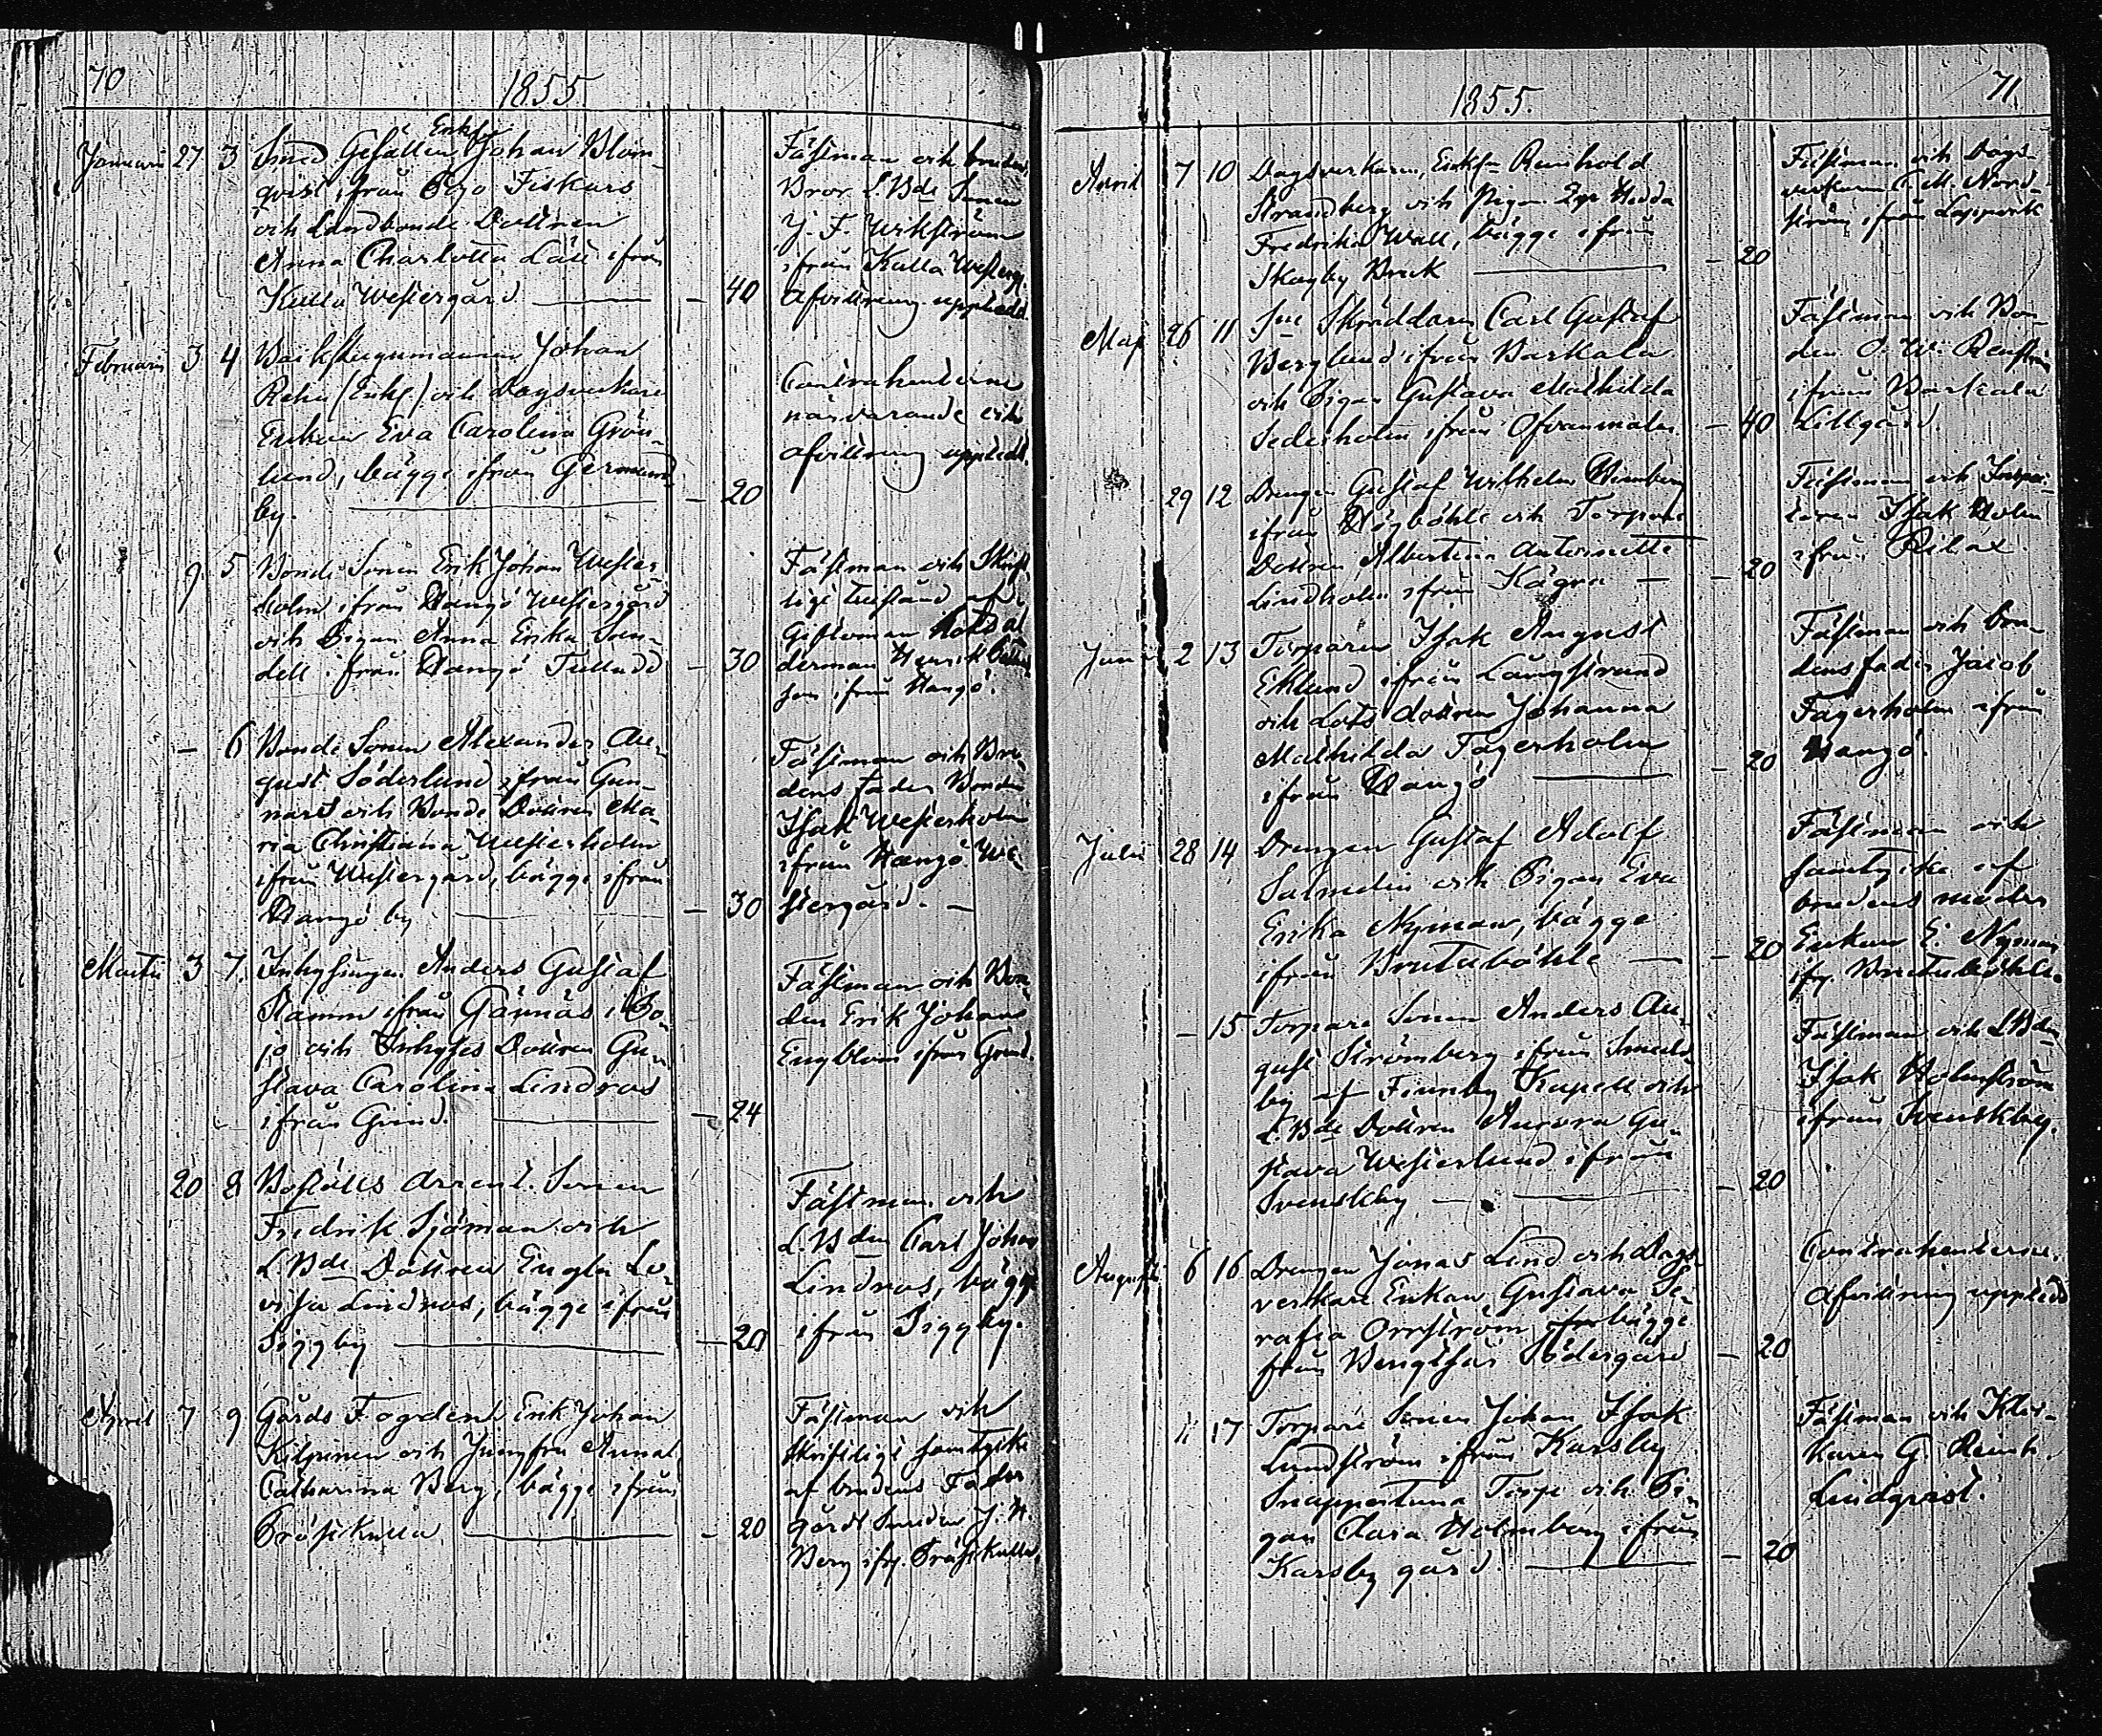 70
1855
Januarii 27 3 Smed Gesällen Enkl. Johan Blom-
qvist ifrån Pojo Fiskars
och Landbonde Dottren
Anna Charlotta Lätt ifrån
Kulla Westergård — 40
Fästman och brudens
Bror L.Bde Sonen
J. F. Wikström
ifrån Kulla Westerg.
Afvittring uppledd.
Februarii 3 4 Backstugumannen Johan
Rehn (Enkl.) och Dagsverkare
Enkan Eva Carolina Grön-
lund, bägge ifrån Germund-
by. — 20
Contrahenterne
närvarande och
afvittring uppledd.
9 5 Bonde Sonen Erik Johan Wester-
holm ifrån Hangö Westergård
och Pigan Anna Erika Sun-
dell ifrån Hangö Tulludd — 30
Fästman och Skrift-
ligt tillstånd af
Giftoman Lots ål-
derman Henrik
son ifrån Hangö.
— 6 Bonde Sonen Alexander Au-
gust Söderlund ifrån Gun-
nars och Bonde Dottren Ma-
ria Christiana Westerholm
ifrån Westergård, bägge ifrån
Hangö by — 30
Fästman och Bru-
dens fader Bonden
Isak Westerholm
ifrån Hangö We-
stergård. —
Martii 3 7. Inhysingen Anders Gustaf
Stamm ifrån Gärnäs i Po-
jo och Inhyses Dottren Gu-
stava Carolina Lindros
ifrån Grind. — 24
Fästman och Bon-
den Erik Johan
Engblom ifrån Grind.
20 8 Boställs Arrend. Sonen
Fredrik Sjöman och
L.Bde Dottren Engla Lo-
visa Lindros, bägge ifrån
Siggby — 20
Fästman och
L.Bden Carl Johan
Lindros, bägge
ifrån Siggby.
April 7 9 Gårds Fogden Erik Johan
Kilpinen och Jungfru Anna
Catharina Berg, bägge ifrån
Prästkulla — 20
Fästman och
skriftligt samtycke
af brudens Fader
gårds Smeden J. H.
Berg ifr. Prästkulla.
71
1855.
April 7 10 Dagsverkaren, Enkl. Reinhold
Strandberg och Pigan Hedda
Fredrika Wall, bägge ifrån
Skogby Bruk — 20
Fästman och Dags-
verkaren C. M. Nord-
ström ifrån Lappvik
Maji 26 11 Sne Skräddaren Carl Gustaf
Berglund ifrån Baskala
och Pigan Gustava Mathilda
Sederholm ifrån Ofvanmalm — 40
Fästman och Bon-
den O. W. Renström
ifrån Baskala
Lillgård.
29 12 Drengen Gustaf Wilhelm Wimberg
ifrån Högböhle och Torpare
Dottren Albertina Antoinette
Lindholm ifrån Kägra — 20
Fästman och Inspec-
toren Isak Holm
ifrån Rilax.
Juni 2 13 Torparen Isak August
Eklund ifrån Långstrand
och Lots dottren Johanna
Mathilda Fagerholm
ifrån Hangö — 20
Fästman och bru-
dens fader Jacob
Fagerholm ifrån
Hangö.
Julii 28 14 Drengen Gustaf Adolf
Salmelin och Pigan Eva
Erika Nyman, bägge
ifrån Brutuböhle — 20
Fästman och
samtycke af
brudens moder
Enkan E. Nyman
ifr. Brutuböhle.
— 15 Torpare Sonen Anders Au-
gust Strömberg ifrån Smeds-
by af Finnby Kapell och
L.Bde Dottren Aurora Gu-
stava Westerlund ifrån
Svenskby — 20
Fästman och L.Bden
Isak Holmström
ifrån Svenskby.
Augusti 6 16 Drengen Jonas Lind och Dags-
verkare Enkan Gustava Se-
rafia Orrström bägge
från Bengtsår Södergård — 20
Contrahenterne.
Afvittring uppledd
11 17 Torpare Sonen Johan Isak
Lundström ifrån Karsby
Snappertuna Torp och Pi-
gan Clara Holmberg ifrån
Karsby gård. — 20
Fästman och Kloc-
karen G. Reinh.
Lindqvist.